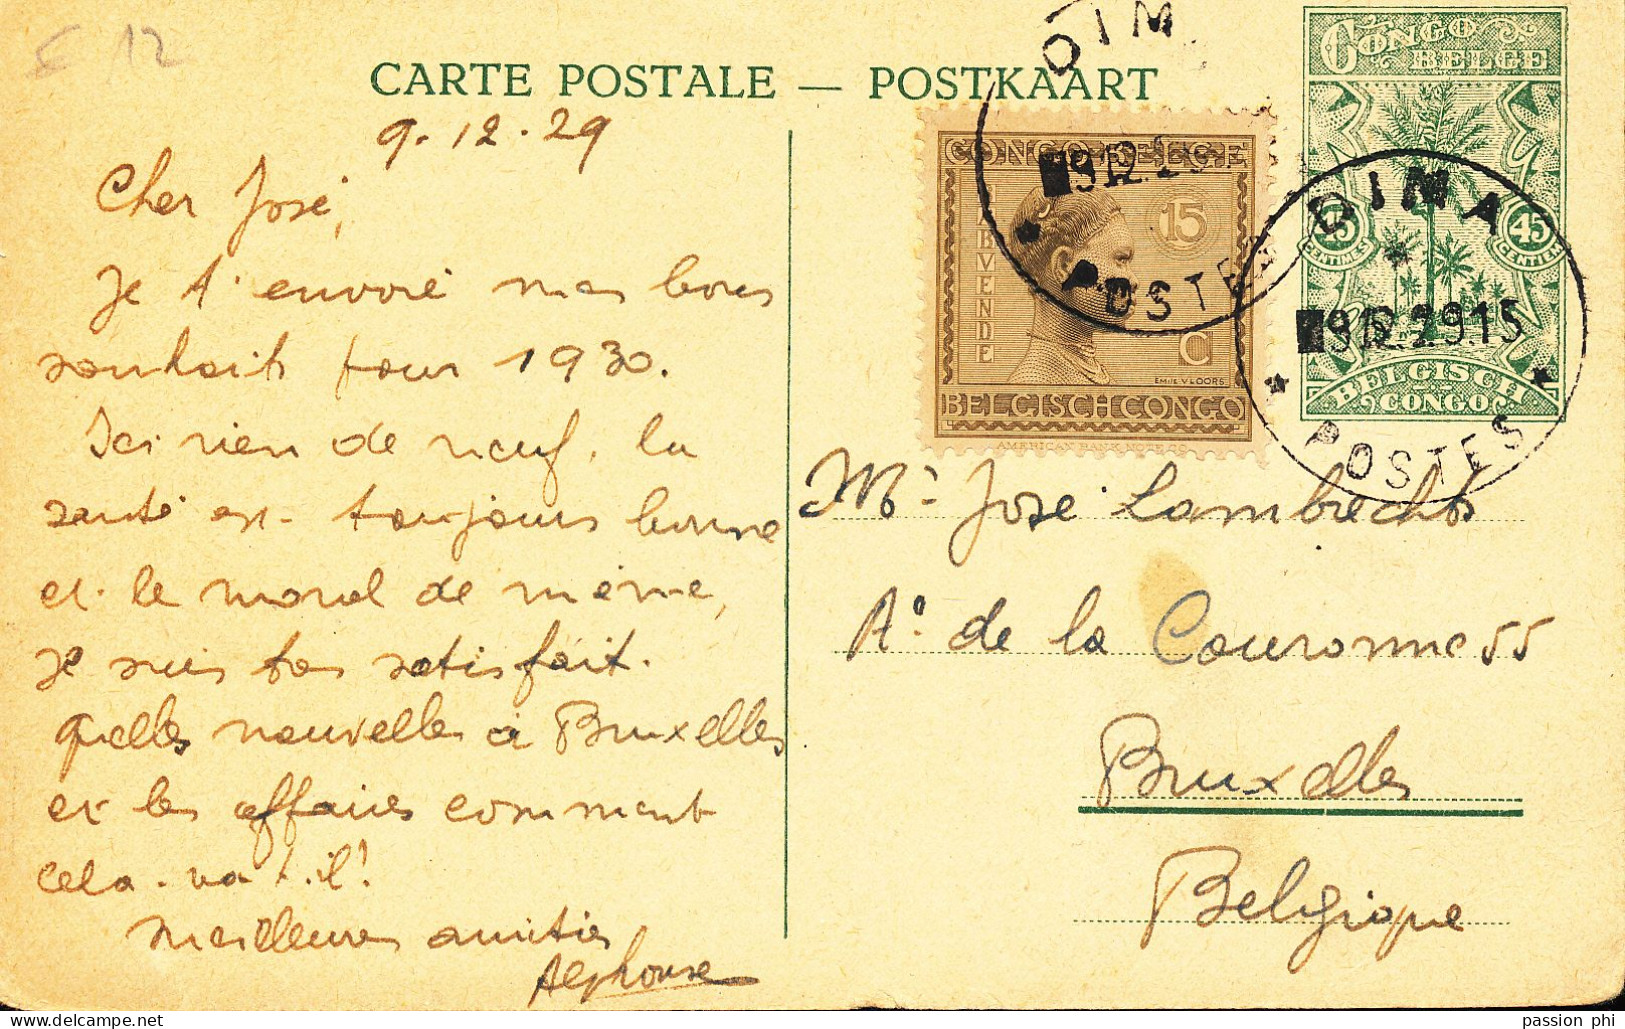 E 12
CARTE POSTALE — POSTKAART
9.12.29
Cher José,
Je t'envoie mes bons
souhaits pour 1930.
Ici rien de neuf, la
santé est toujours bonne
et le moral de même,
je suis très satisfait.
quelles nouvelles à Bruxelles
et les affaires comment
cela va t-il!
Meilleures amitiés
Alphonse
DIM
9 12 2
POSTES
CONGO BELGE
15
C
ABVENDE
EMILE VLOORS
BELGISCH CONGO
AMERICAN BANK NOTE CO.
CONGO BELGE
45 CENTIMES
45 CENTIEM
BELGISCH CONGO
DIMA
POSTES
Mr José Lambrechts
Ae de la Couronne 55
Bruxelles
Belgique
passion phi